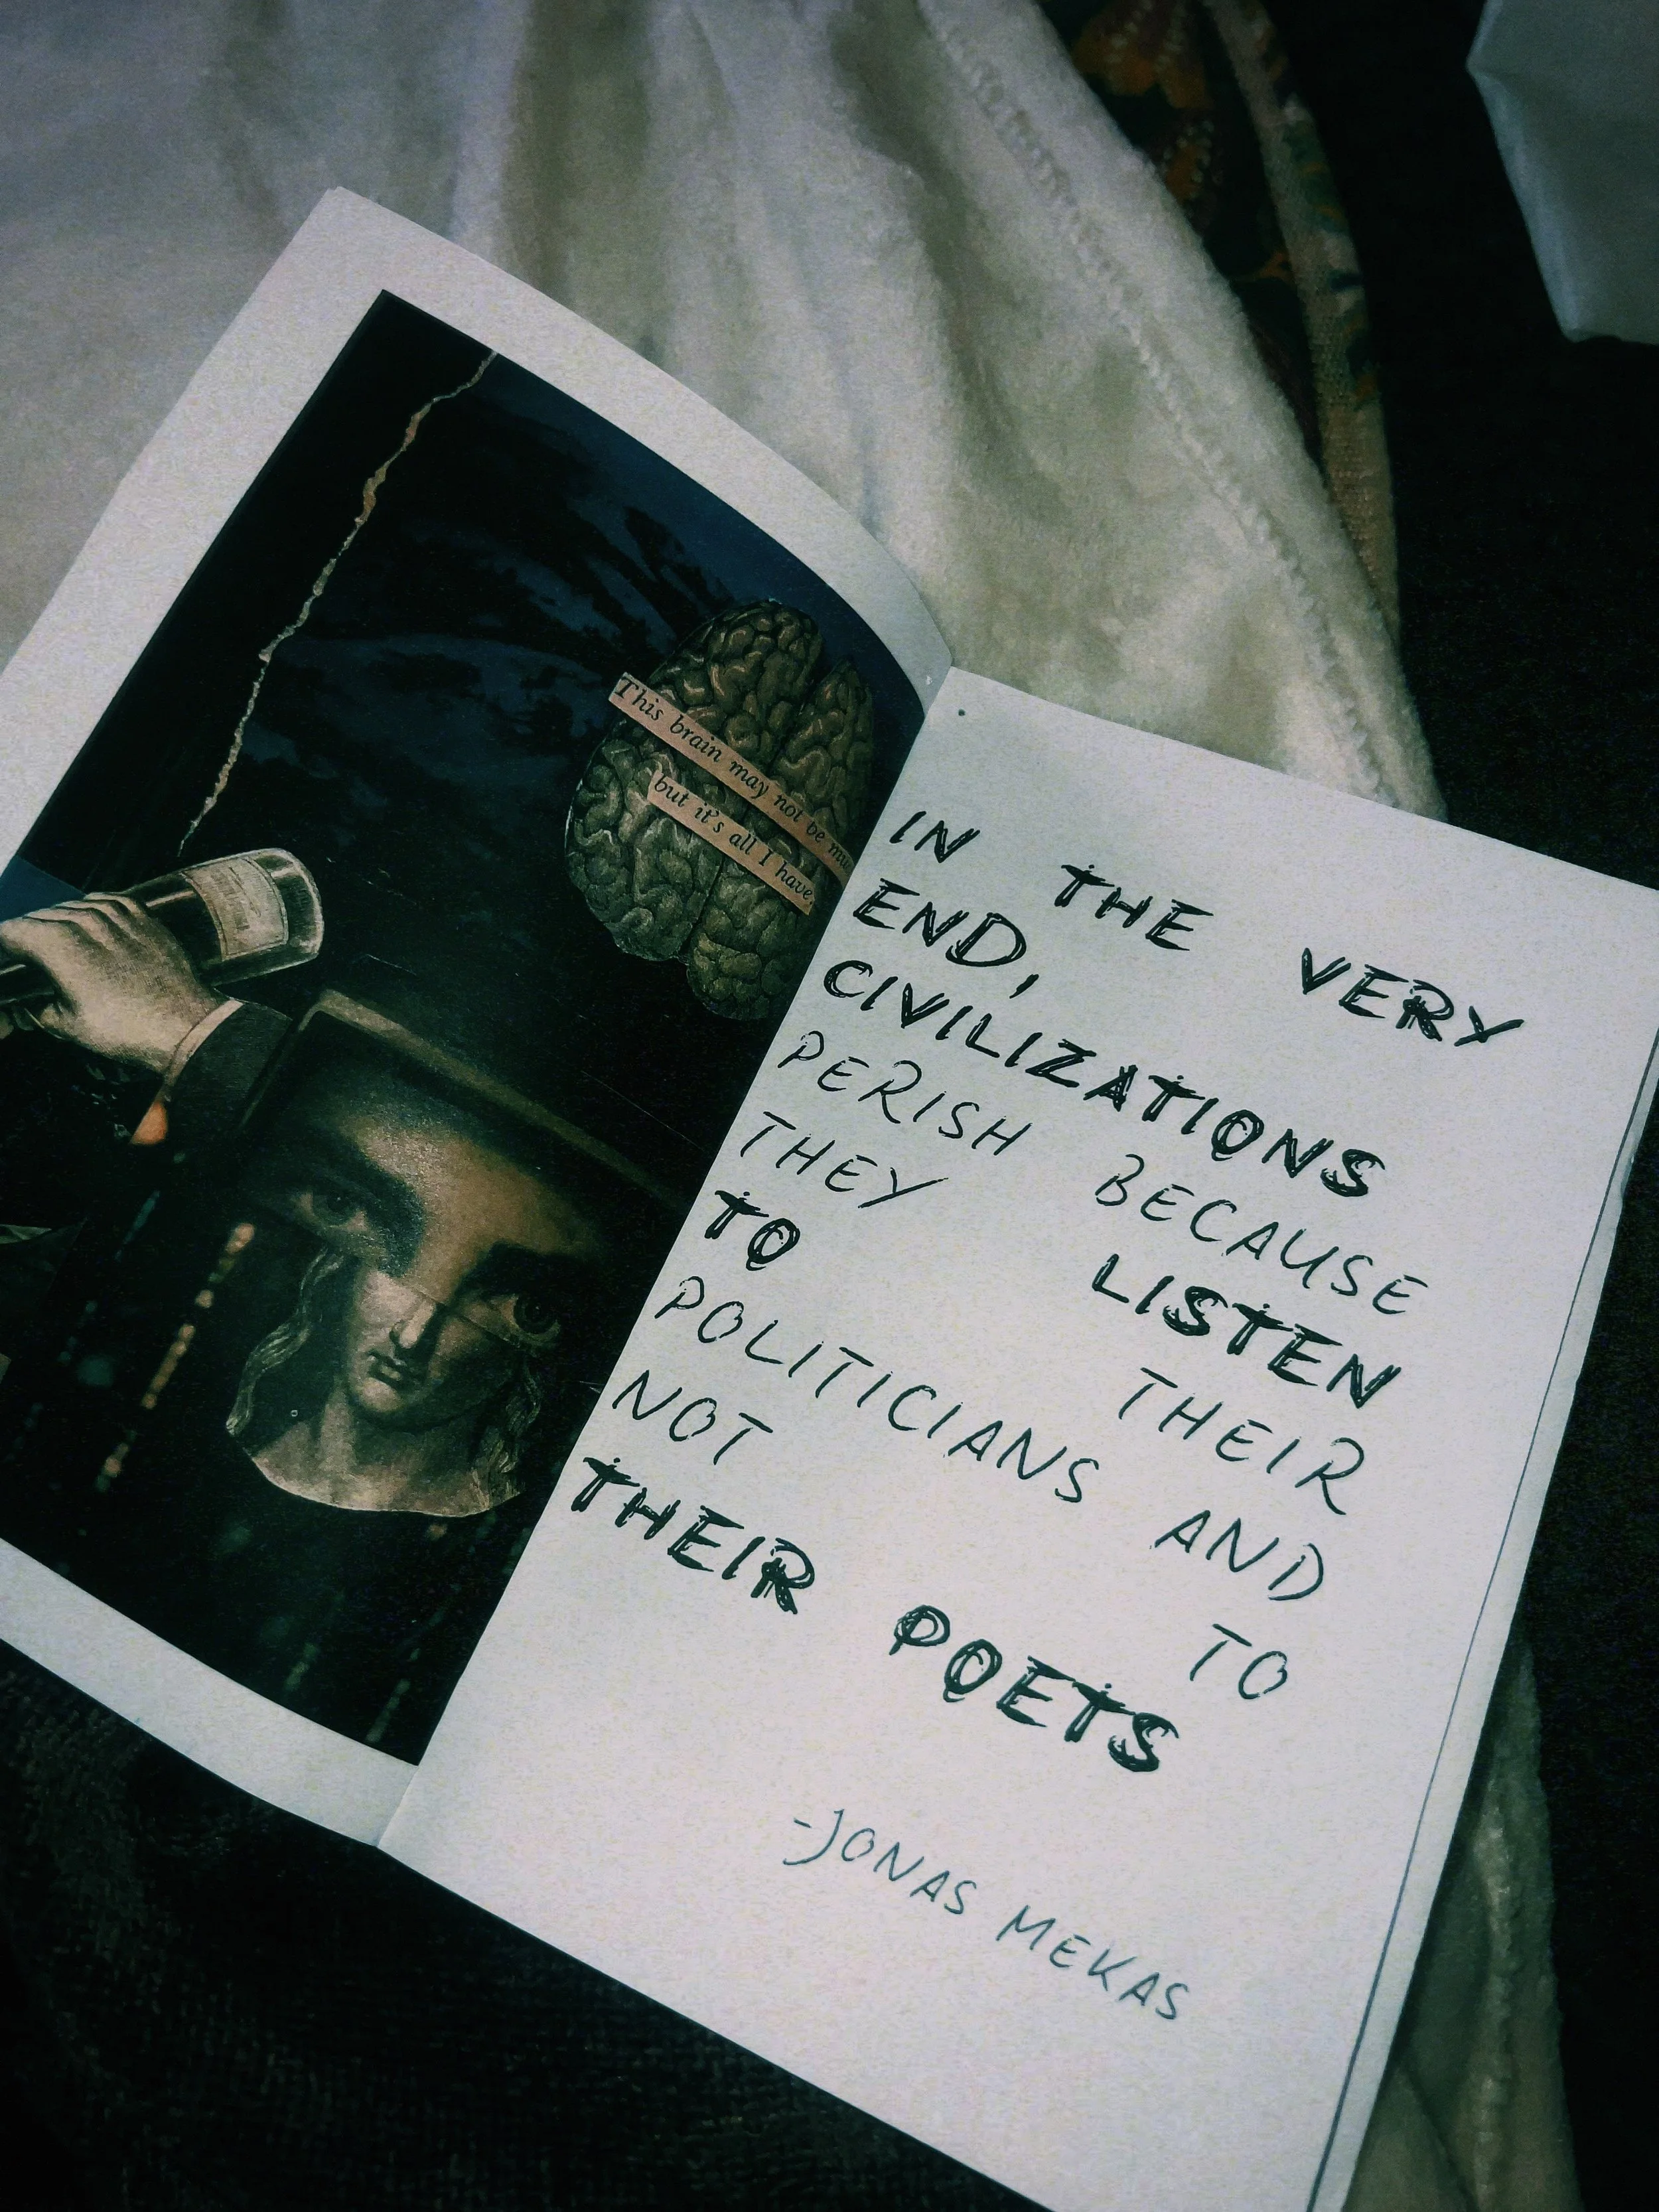 This brain may not be
but it's all I have,
IN THE VERY
END,
CIVILIZATIONS
PERISH BECAUSE
THEY LISTEN
TO THEIR
POLITICIANS AND
NOT TO
THEIR POETS
-JONAS MEKAS